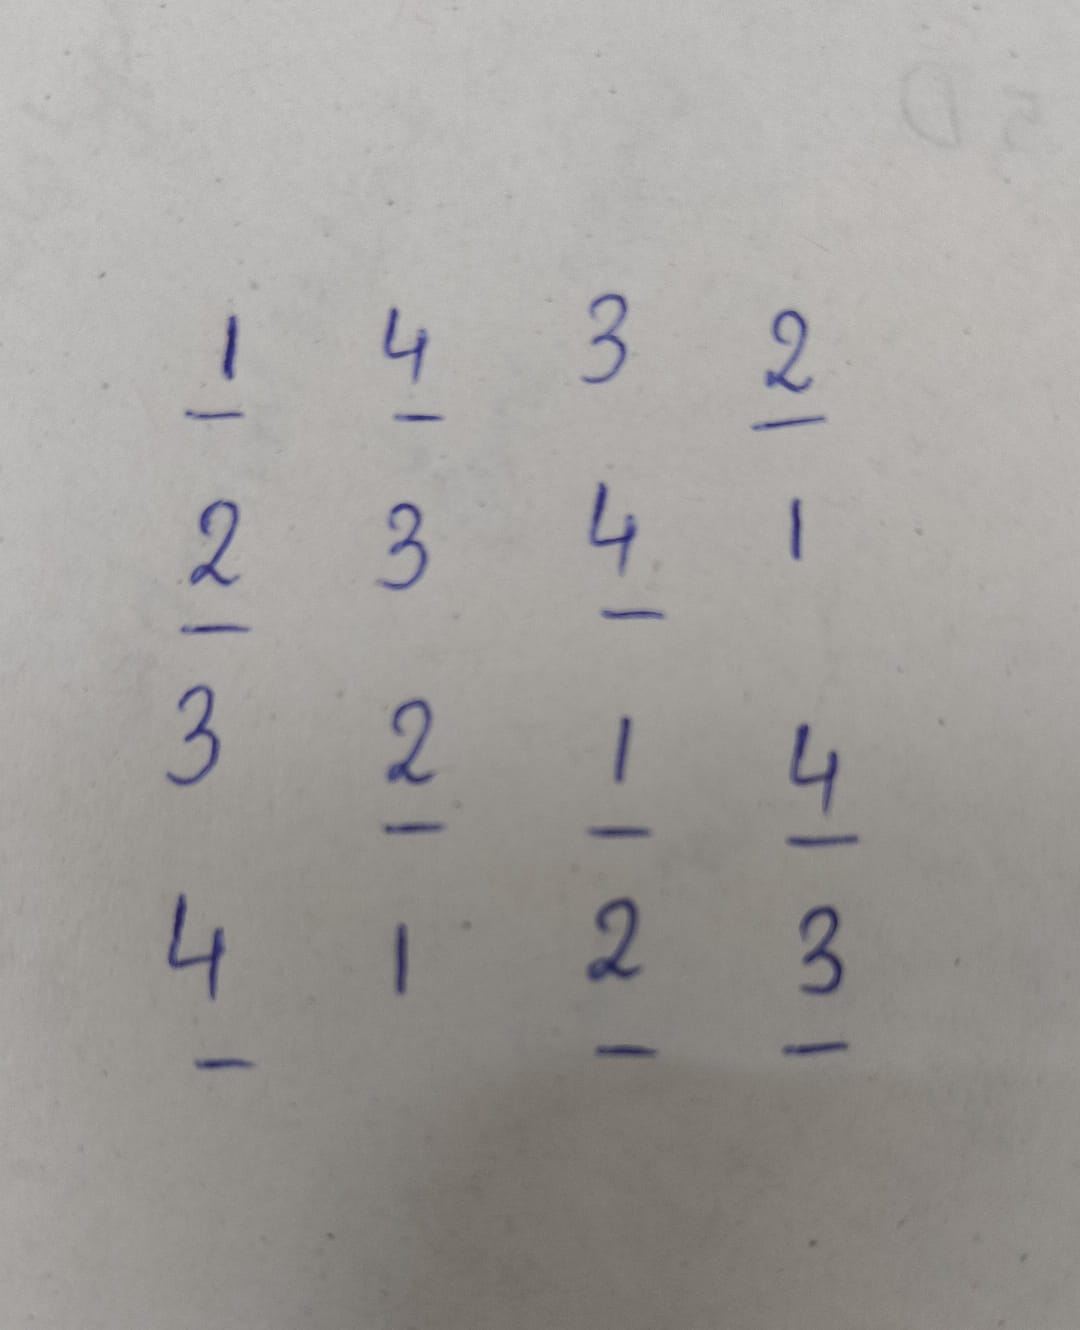 1 4 3 2
2 3 4 1
3 2 1 4
4 1 2 3